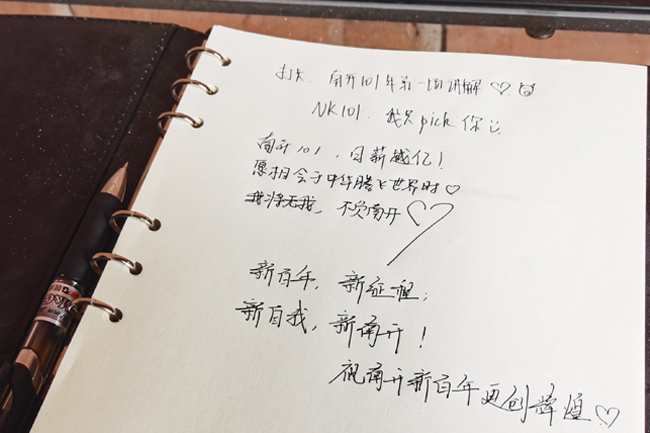 打卡．南开101年第一场讲解♡
NK101．我只pick你
南开101，日薪越亿！
愿相会于中华腾飞世界时♡
我将无我，不负南开♡
新百年，新征程；
新自我，新南开！
祝南开新百年更创辉煌♡